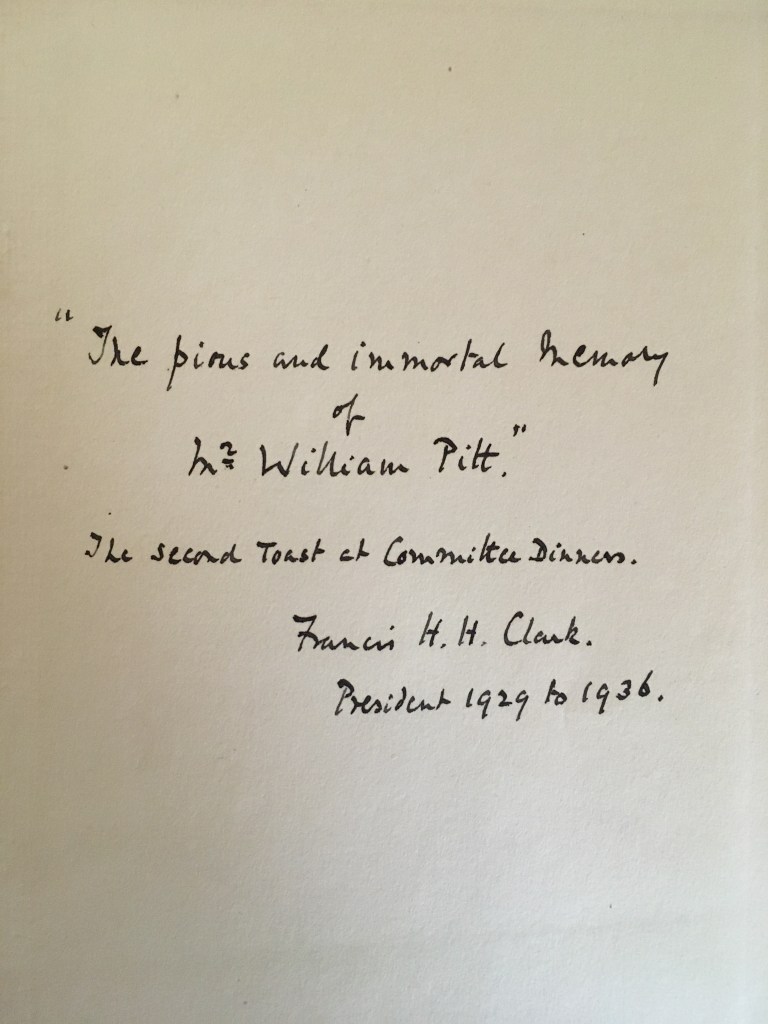 "The pious and immortal Memory
of
Mr William Pitt."
The second Toast at Committee Dinners.
Francis H. H. Clark.
President 1929 to 1936.